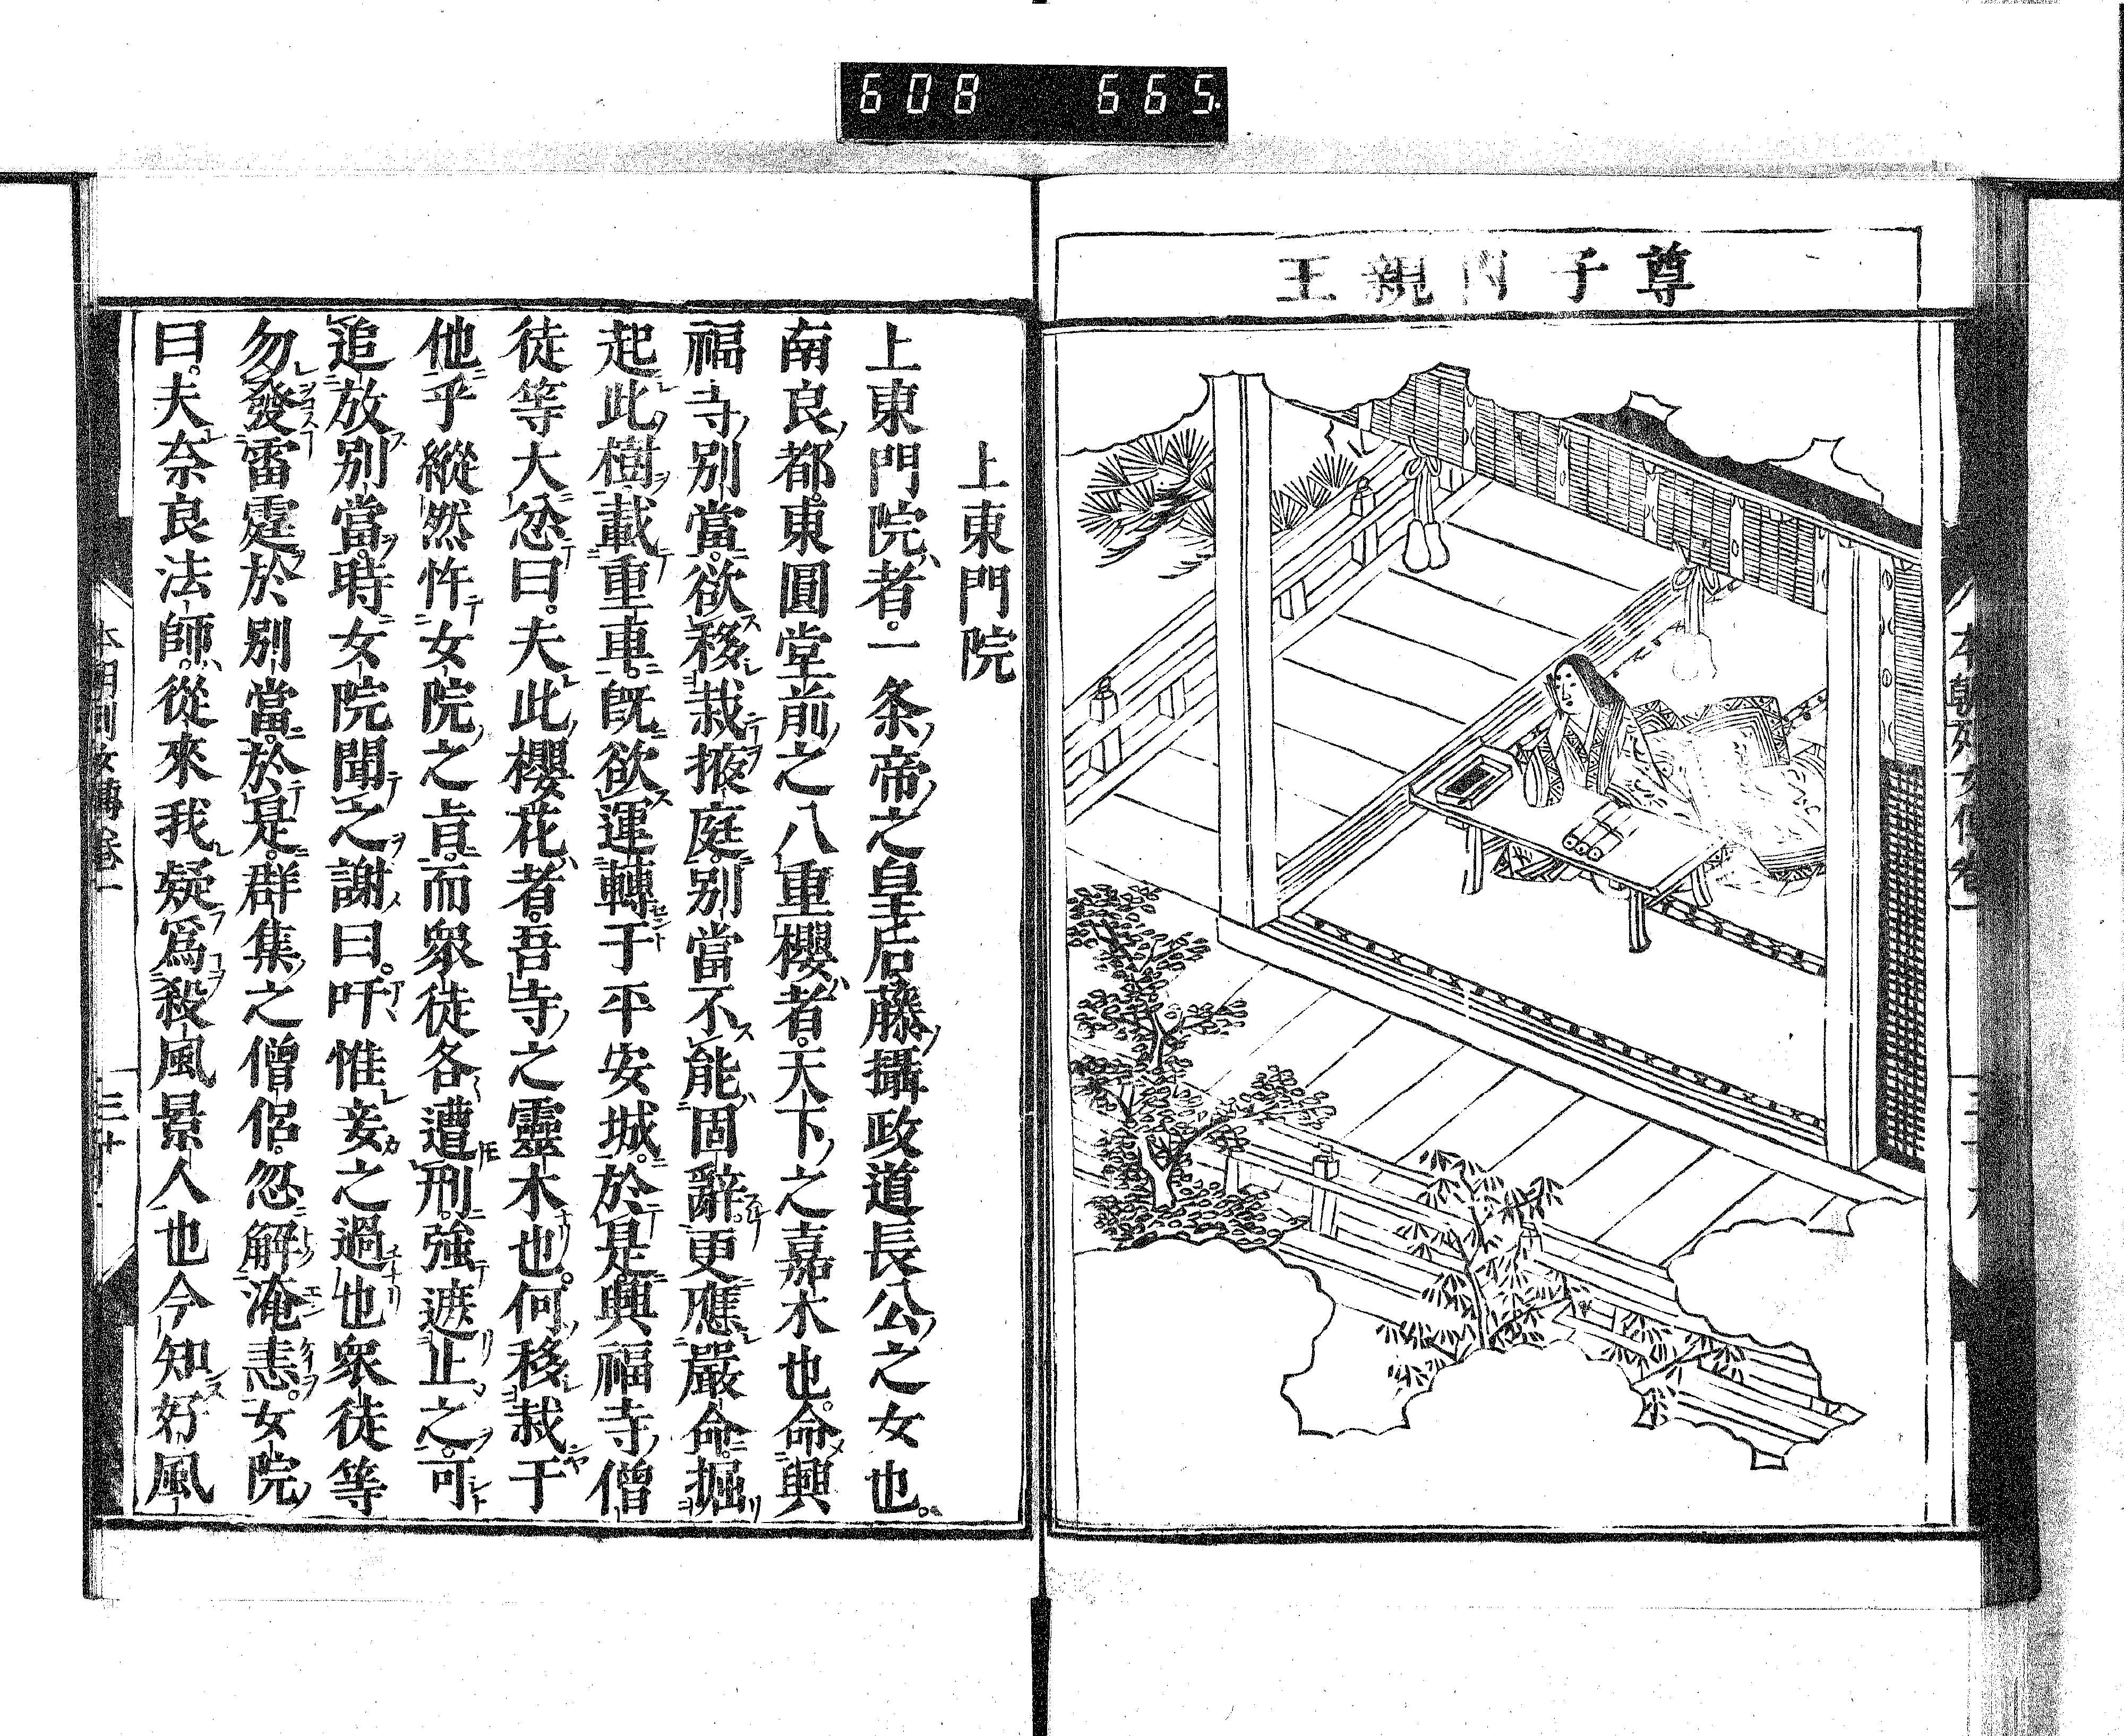 608 665.
尊子内親王
上東門院
上東門院者。一条帝之皇后藤攝政道長公之女也。
南良都。東圓堂前之八重櫻者。天下之嘉木也。命興
福寺別當。欲移栽掖庭。別當不能固辭。更應嚴命。掘
起此樹載重車。既欲運轉于平安城。於是興福寺僧
徒等大忿曰。夫此櫻花者。吾寺之靈木也。何移栽于
他乎縱然忤女院之旨。而衆徒各遭刑。強遮止之。可
追放別當。時女院聞之謝曰。吁惟妾之過也衆徒等
勿發雷霆於別當。於是。群集之僧侶。忽解淹恚。女院
曰。夫奈良法師。從來我疑爲殺風景人也今知好風
本朝列女傳卷一
三十